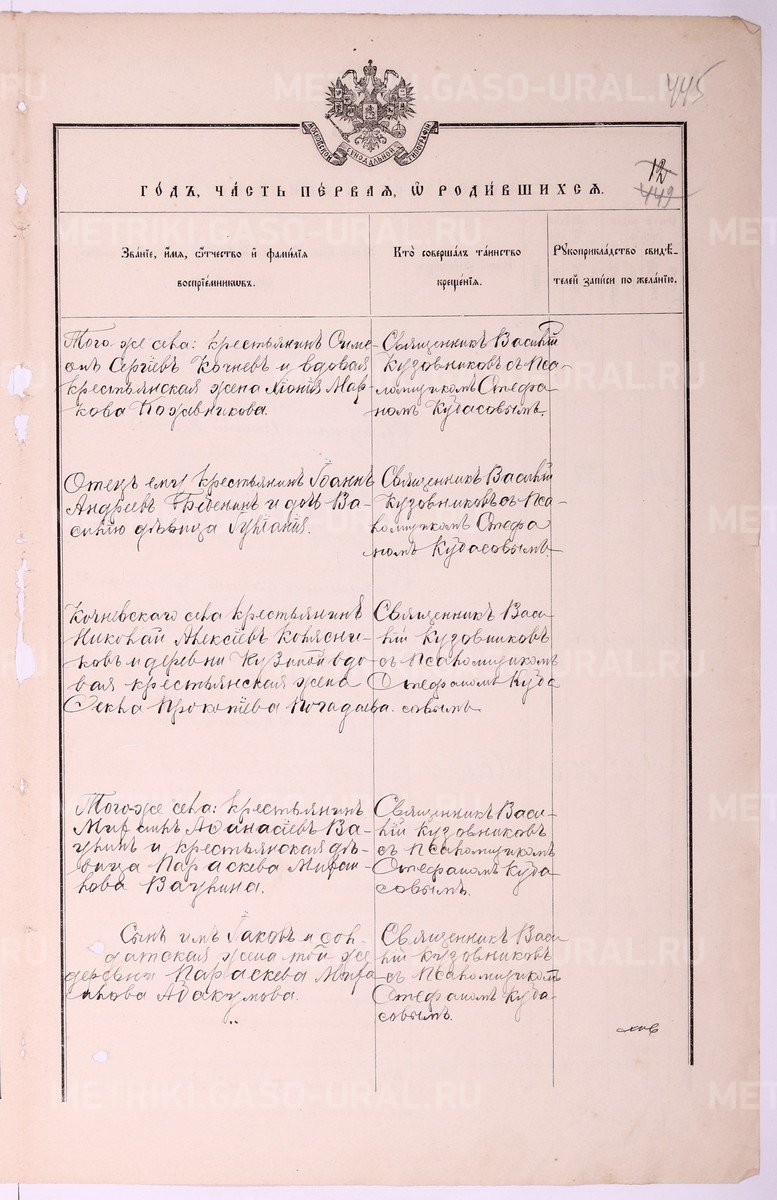 445
12
449
МОСКОВСКОЙ СѴНОДАЛЬНОЙ ТИПОГРАФІИ
ГО́ДЪ, ЧА́СТЬ ПЕ́РВАЯ, Ѡ҆ РОДИ́ВШИХСЯ.
Зва́нїе, и҆́мѧ, ѻ҆́тчество и҆ фами́лїѧ
воспрїе́мникѡвъ.
Кто̀ соверша́лъ та́инство
креще́нїѧ.
Рꙋкоприкла́дство свидѣ́-
телей за́писи по жела́нїю.
Того же села: крестьянинъ Симе-
онъ Сергіевъ Кочневъ и вдовая
крестьянская жена Хіонія Мар-
кова Пожевникова.
Священникъ Василій
Кузовниковъ съ Пса-
ломщикомъ Стефа
номъ Кубасовымъ.
Отецъ ему крестьянинъ Іоаннъ
Андреевъ Бебенинъ и дочь Ва-
силію дѣвица Іуліанія.
Священникъ Василій
Кузовниковъ съ Пса-
ломщикомъ Стефа
номъ Кубасовымъ.
Кочневскаго села крестьянинъ
Николай Алексіевъ Колясни-
ковъ и деревни Кузиной вдо
вая крестьянская жена
Ѳекла Прокопіева Погадаева.
Священникъ Васи-
лій Кузовниковъ
съ Псаломщикомъ
Стефаномъ Куба
совымъ.
Того-же села: крестьянинъ
Аѳанасіевъ Ва-
гинъ и крестьянская дѣ-
вица Параскева Михаи-
лова Вагина.
Священникъ Васи-
лій Кузовниковъ
съ Псаломщикомъ
Стефаномъ Куба
совымъ.
Сынъ имъ Іаковъ и сол-
датская жена той же
деревни Параскева
Абакумова.
Священникъ Васи-
лій Кузовниковъ
съ Псаломщикомъ
Стефаномъ Куба-
совымъ.
METRIKI.GASO-URAL.RU